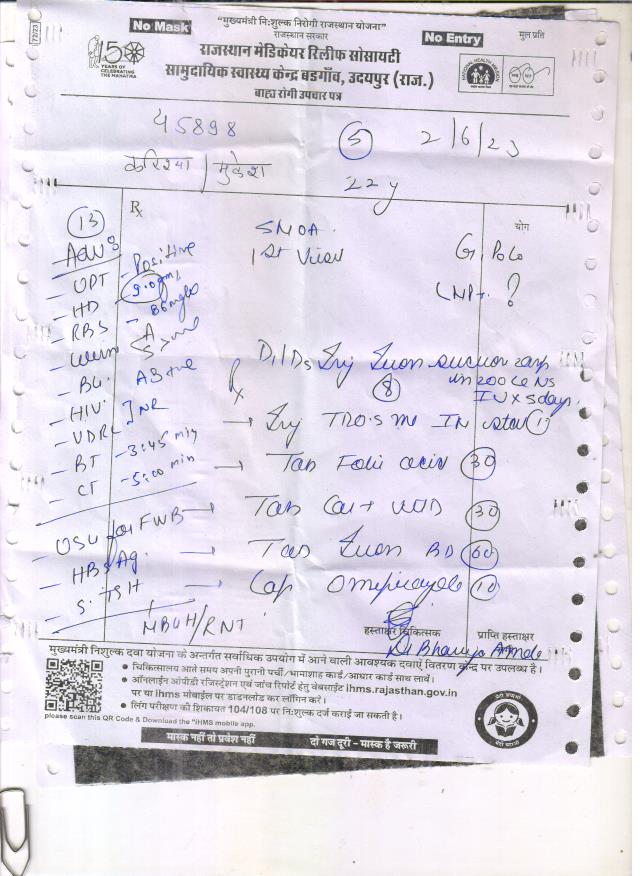 72/23
No Mask
"मुख्यमंत्री निःशुल्क निरोगी राजस्थान योजना"
राजस्थान सरकार
No Entry
मूल प्रति
150
YEARS OF
CELEBRATING
THE MAHATMA
राजस्थान मेडिकेयर रिलीफ सोसायटी
सामुदायिक स्वास्थ्य केन्द्र बडगाँव, उदयपुर (राज.)
बाह्य रोगी उपचार पत्र
NATIONAL HEALTH MISSION
45898
5
2/6/23
करिश्मा / मुकेश
22 y
13
Rx
योग
1st
G1 P0L0
LMP - ?
Adv:
UPT - Positive
HB - 9.0gm%
RBS -
BG. AB+ve
HIV
VDRL
BT - 3:45 min
CT - 5:00 min
Rx
Inj Iron sucrose
in 200 cc NS
IV x 5 days.
8
→ Inj
IM stat 1
→ Tab Folic acid 30
→ Tab Cal+ 30
→ Tab Iron BD 60
→ Cap Omeprazole 10
- USG for FWB
- HBsAg.
- S. TSH
MBGH/RNT
हस्ताक्षर चिकित्सक
प्राप्ति हस्ताक्षर
मुख्यमंत्री निशुल्क दवा योजना के अन्तर्गत सर्वाधिक उपयोग में आने वाली आवश्यक दवाऐं वितरण केन्द्र पर उपलब्ध है।
• चिकित्सालय आते समय अपनी पुरानी पर्ची/भामाशाह कार्ड/आधार कार्ड साथ लावें।
• ऑनलाईन ओपीडी रजिस्ट्रेशन एवं जांच रिपोर्ट हेतु वेबसाईट ihms.rajasthan.gov.in
पर या ihms मोबाईल पर डाउनलोड कर लॉगिन करें।
• लिंग परीक्षण की शिकायत 104/108 पर निःशुल्क दर्ज कराई जा सकती है।
please scan this QR Code & Download the "iHMS mobile app.
मास्क नहीं तो प्रवेश नहीं
दो गज दूरी - मास्क है जरूरी